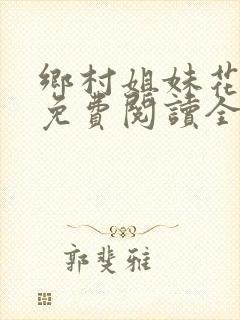 鄉村姐妹花
免費閱讀全
郭斐雅